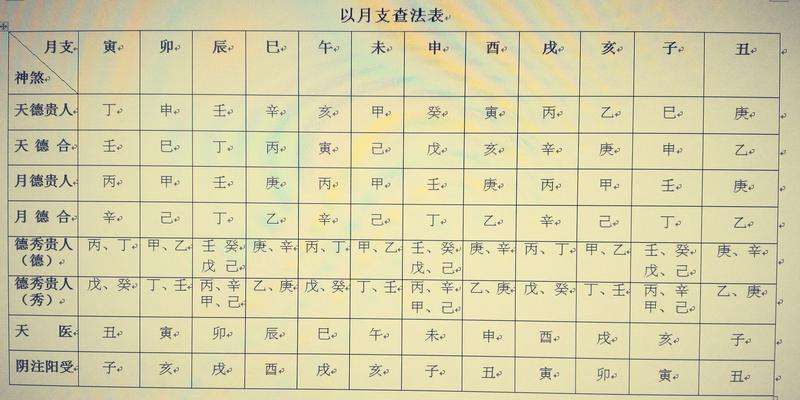 以月支查法表
月支 寅 卯 辰 巳 午 未 申 酉 戌 亥 子 丑
神煞
天德贵人 丁 申 壬 辛 亥 甲 癸 寅 丙 乙 巳 庚
天德合 壬 巳 丁 丙 寅 己 戊 亥 辛 庚 申 乙
月德贵人 丙 甲 壬 庚 丙 甲 壬 庚 丙 甲 壬 庚
月德合 辛 己 丁 乙 辛 己 丁 乙 辛 己 丁 乙
德秀贵人 丙、丁 甲、乙 壬 癸 庚、辛 丙、丁 甲、乙 壬、癸 庚、辛 丙、丁 甲、乙 壬、癸 庚、辛
（德） 戊 己 戊、己 戊、己
德秀贵人 戊、癸 丁、壬 丙、辛 乙、庚 戊、癸 丁、壬 丙、辛 乙、庚 戊、癸 丁、壬 丙、辛 乙、庚
（秀） 甲、己 甲、己 甲、己
天医 丑 寅 卯 辰 巳 午 未 申 酉 戌 亥 子
阴注阳受 子 亥 戌 酉 戌 亥 子 丑 寅 卯 寅 丑